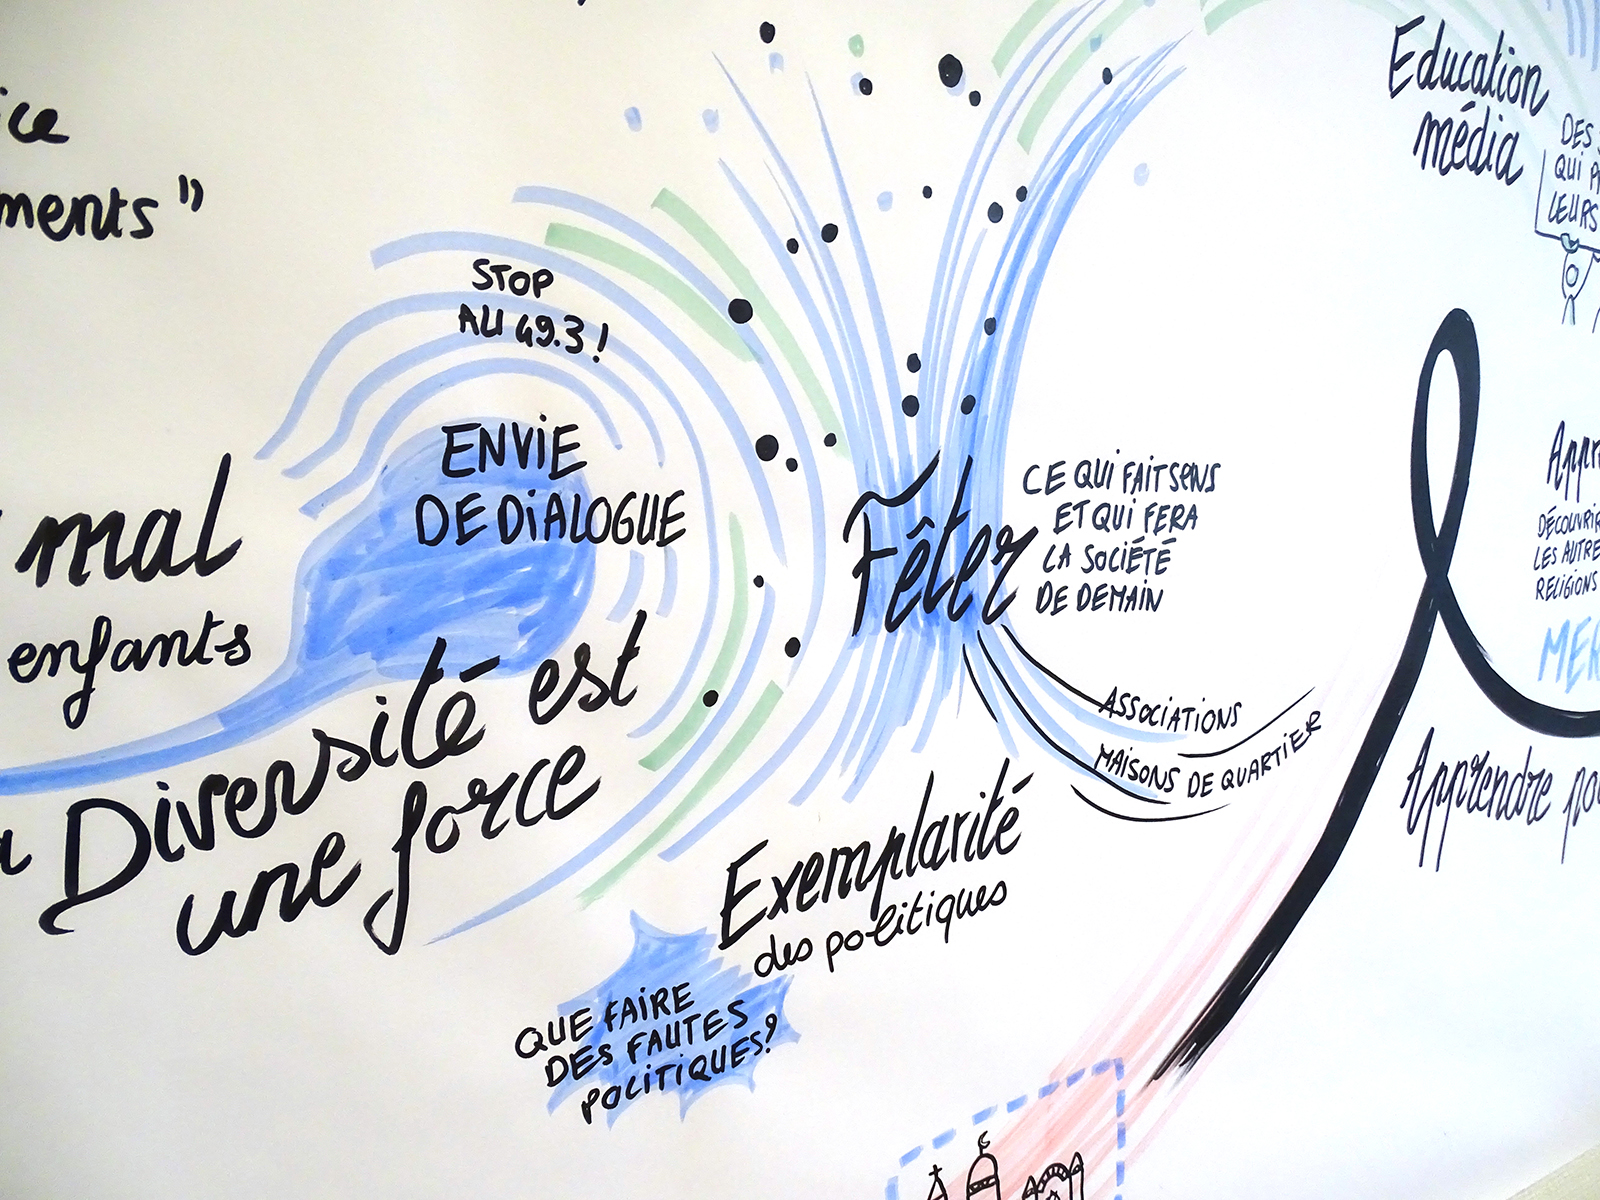 ments"
mal
enfants
Diversité est
une force
STOP
AU 49.3 !
ENVIE
DE DIALOGUE
Fêter
CE QUI FAIT SENS
ET QUI FERA
LA SOCIÉTÉ
DE DEMAIN
ASSOCIATIONS
MAISONS DE QUARTIER
Exemplarité
des politiques
QUE FAIRE
DES FAUTES
POLITIQUES?
Education
média
DES
QUI
LEURS
DÉCOUVRIR
LES AUTRE
RELIGIONS
Apprendre